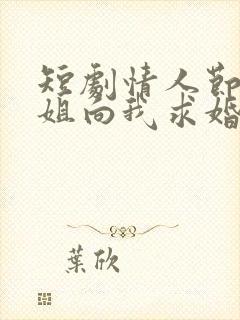 短劇情人節
姐向我求婚
葉欣